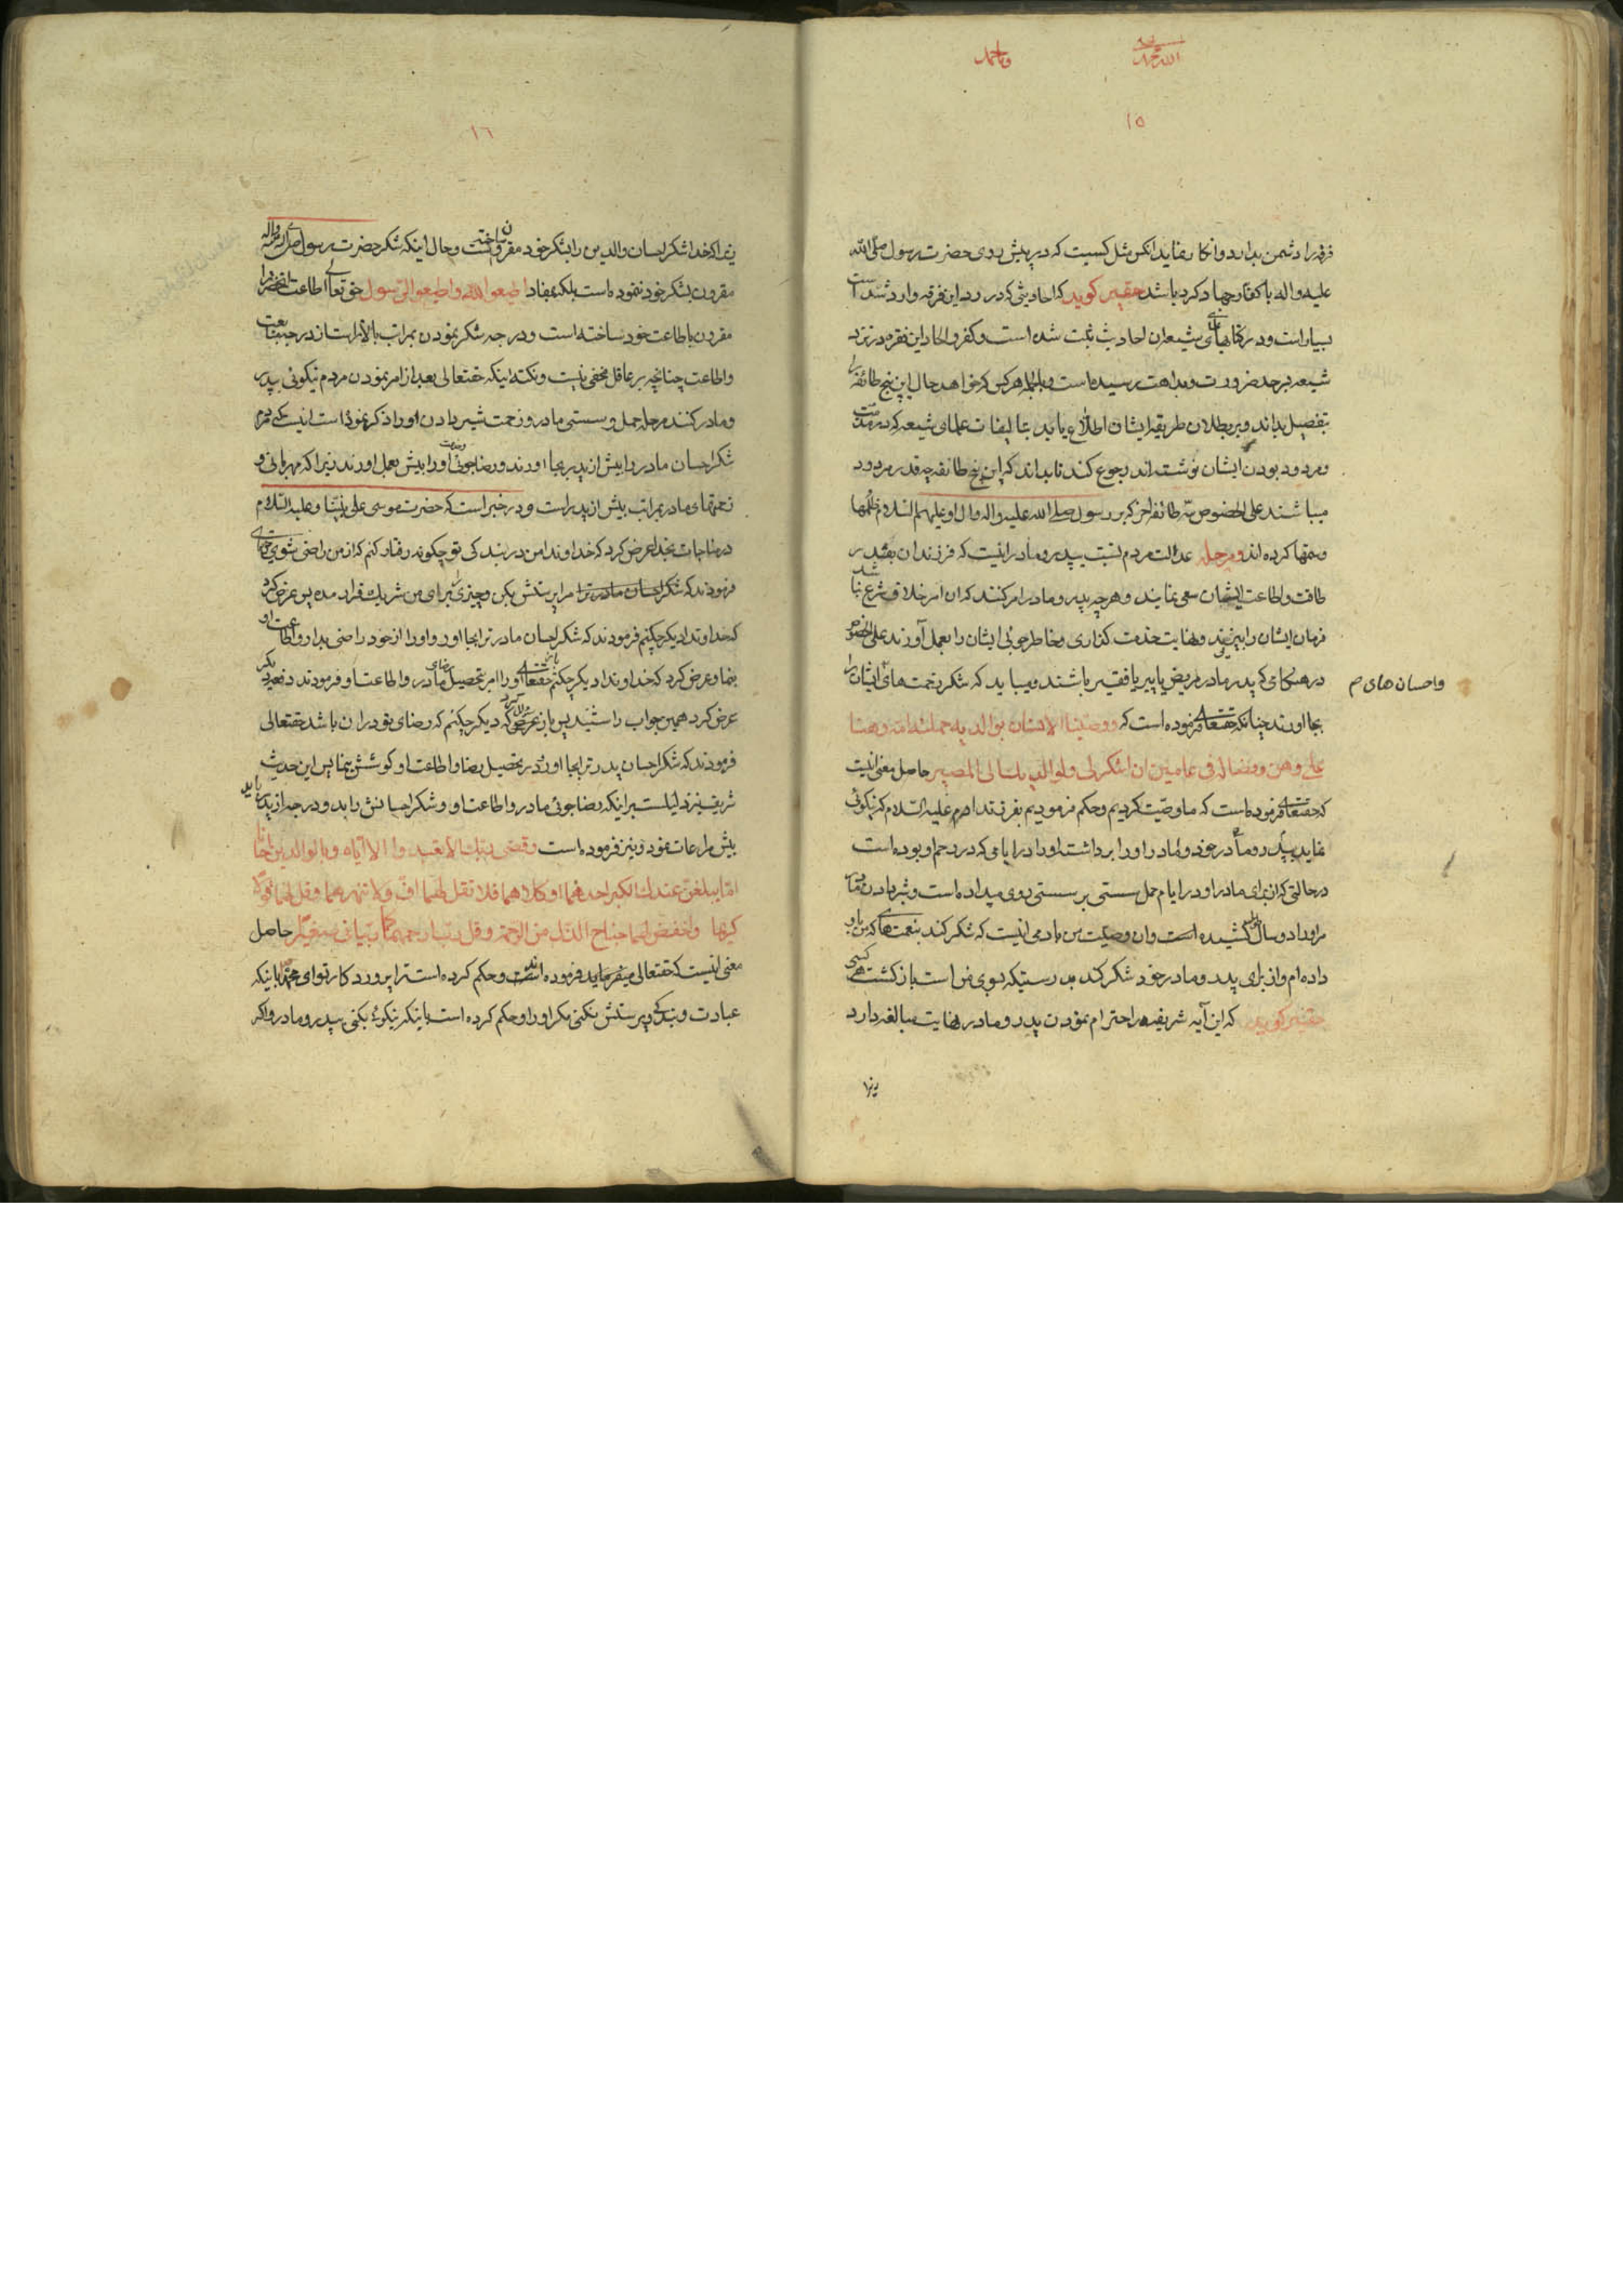 ١٥
فرقه را دشمن بدارد و انکار نماید انکس مثل کسیست که در پیش روی حضرت رسول صلی الله
علیه و اله با کفار جهاد کرد باشد حقیر کوید که احادیثی که در رد این فرقه وارد شده است
بسیار است و در کتابهای شیعه ان احادیث ثبت شده است و کفر و الحاد این فقره در نزد
شیعه بر حد ضرورت و بداهت رسیده است و بالجمله هر کس که خواهد حال این پنج طائفه را
بتفصیل بداند و بر بطلان طریقه ایشان اطلاع یابد بتالیفات علمای شیعه که در مذمت
و مردود بودن ایشان نوشته اند رجوع کند تا بداند که این پنج طائفه چه قدر مردود
میباشند علی الخصوص سه طائفه اخر که بر رسول صلی الله علیه و اله و ال او علیهم السلام ظلمها
و ستمها کرده اند و مرحله عدالت مردم نسبت بپدر و مادر اینست که فرزندان بقدر
طاقت و اطاعت ایشان سعی نمایند و هر چه پدر و مادر امر کنند که ان امر خلاف شرع نباشد
فرمان ایشان را بپذیرند و نهایت خدمت کذاری و خاطر جوئی ایشان را بعمل آورند علی الخصوص
در هنکامی که پدر و مادر مریض یا پیر یا فقیر باشند و میباید که شکر زحمت های ایشان را
و احسان های م
بجا اورند چنانکه حقتعالی فرموده است که و وصینا الانسان بوالدیه حملته امه وهنا
علی وهن و فصاله فی عامین ان اشکر لی و لوالدیک الی المصیر حاصل معنی اینست
که حقتعالی فرموده است که ما وصیت کردیم و حکم فرمودیم بفرزند ادم علیه السلام که نیکوئی
نماید بپدر و مادر خود و مادر او را برداشته او را در ایامی که در رحم او بوده است
در حالتی که از برای مادر او در ایام حمل سستی بر سستی روی میداده است و شیر دادن مادر
مر او را دو سال کشیده است و ان وصیت من بادمی اینست که شکر کند بنعمتهای که من باو
داده ام و از برای پدر و مادر خود شکر کند بدرستیکه بسوی من است باز کشت هر کسی
حقیر کوید که این آیه شریفه در احترام نمودن پدر و مادر نهایت مبالغه دارد
زیرا
١٦
زیرا که خدا شکر احسان والدین را بشکر خود مقرون ساخته است و حال اینکه شکر حضرت رسول صلی الله علیه و اله
مقرون بشکر خود ننموده است بلکه بمفاد اطیعوا الله و اطیعوا الرسول حق تعالی اطاعت انحضرت را
مقرون باطاعت خود ساخته است و درجه شکر نمودن بمراتب بالاتر است از درجه متابعت
و اطاعت چنانچه بر عاقل مخفی نیست و نکته اینکه حقتعالی بعد از امر نمودن مردم نیکوئی بپدر
و مادر کنند مرحله حمل و سستی مادر و زحمت شیر دادن او را ذکر نموده است اینست که مردم
شکر احسان مادر را بیش از پدر بجا اورند و رضا جوئی او را بیش بعمل اورند زیرا که مهربانی و
زحمتهای مادر بمراتب بیش از پدر است و در خبر است که حضرت موسی علی نبینا و علیه السلام
در مناجات بخدا عرض کرد که خداوندا من در بندکی تو چکونه رفتار کنم که از من راضی شوی حقتعالی
فرمودند که شکر احسان مادر ترا مرا پرستش بکن و چیزی برای من شریک قرار مده پس عرض کرد
که خداوندا دیکر چکنم فرمودند که شکر احسان مادر ترا بجا اور و او را از خود راضی بدار و اطاعت او
بنما و عرض کرد که خداوندا دیکر چکنم باز حقتعالی او را امر بتحصیل رضای مادر و اطاعت او فرمودند دفعه دیکر
عرض کرد همین جواب را شنید پس باز عرض کرد که دیکر چکنم که رضای تو در ان باشد حقتعالی
فرمودند که شکر احسان پدر ترا بجا اور و در تحصیل رضا و اطاعت او کوشش بنما پس این حدیث
شریف نیز دلیلست بر اینکه رضا جوئی مادر و اطاعت او و شکر احسانش را بدو درجه از پدر باید
بیش مراعات نمود و نیز فرموده است و قضی ربک الا تعبدوا الا ایاه و بالوالدین احسانا
اما یبلغن عندک الکبر احدهما او کلاهما فلا تقل لهما اف و لا تنهرهما و قل لهما قولا
کریما و اخفض لهما جناح الذل من الرحمة و قل رب ارحمهما کما ربیانی صغیرا حاصل
معنی اینست که حقتعالی میفرماید فرموده است و حکم کرده است پروردکار تو ای محمد باینکه
عبادت و بندکی و پرستش نکنی مکر او را و حکم کرده است باینکه نیکوئی بکنی بپدر و مادر و اکر